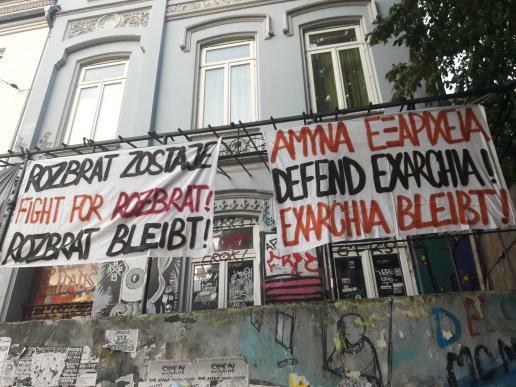 ROZBRAT ZOSTAJE
FIGHT FOR ROZBRAT!
ROZBRAT BLEIBT!
ΑΜΥΝΑ ΕΞΑΡΧΕΙΑ
DEFEND EXARCHIA!
EXARCHIA BLEIBT!
OPEN
OPEN